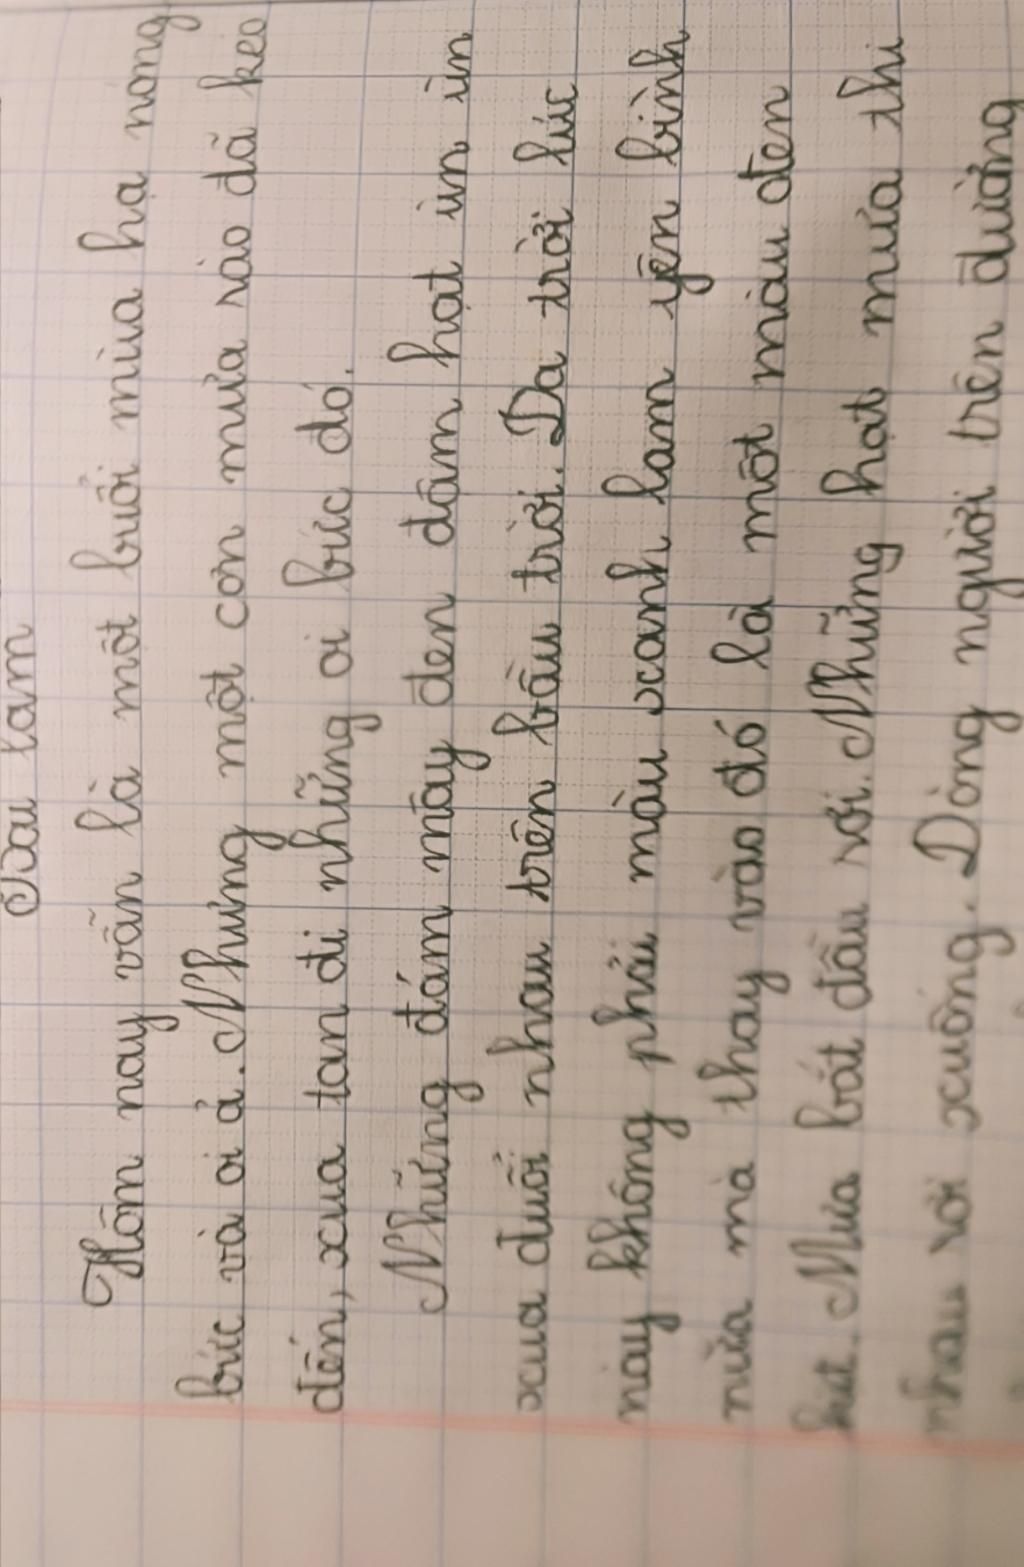 Bài làm
Hôm nay vẫn là một buổi mùa hạ nóng
bức và oi ả. Nhưng một cơn mưa rào đã kéo
đến, xua tan đi những oi bức đó.
Những đám mây đen đậm hạt ùn ùn
xua đuổi nhau trên bầu trời. Da trời lúc
này không phải màu xanh lam yên bình
nữa mà thay vào đó là một màu đen
kịt. Mưa bắt đầu rơi. Những hạt mưa thi
nhau rơi xuống. Dòng người trên đường